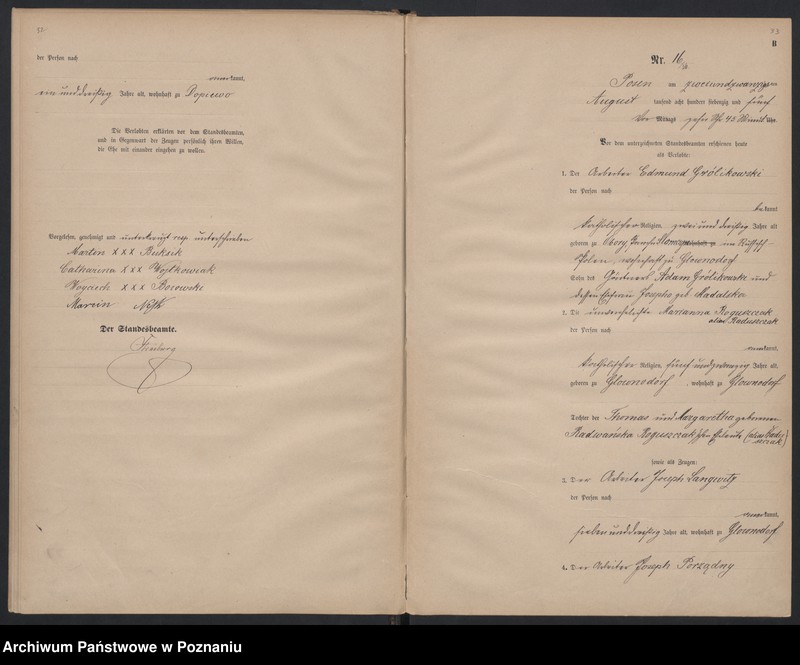 der Person nach
kannt,
ein und dreißig Jahre alt, wohnhaft zu Dopiewo
Die Verlobten erklärten vor dem Standesbeamten,
und in Gegenwart der Zeugen persönlich ihren Willen,
die Ehe mit einander eingehen zu wollen.
Vorgelesen, genehmigt und unterkreuzt resp. unterschrieben
Martin x x x
Catharina x x x Wojtkowiak
Woyciech x x x Borowski
Marcin
Der Standesbeamte.
B
Nr. 16
Posen am zweiundzwanzigsten
August tausend acht hundert siebenzig und fünf
Vormittags zehn Uhr 45 Minuten Uhr.
Vor dem unterzeichneten Standesbeamten erschienen heute
als Verlobte:
1. Der Arbeiter Edmund Królikowski
der Person nach
bekannt
katholischer Religion, zwei und dreißig Jahre alt
geboren zu im Russisch
Polen, wohnhaft zu Glownodorf
Sohn des Gärtners Adam Królikowski und
dessen Ehefrau Josepha geb. Madalska
2. Die unverehelichte Marianna Roguszczak
alias Raduszczak
der Person nach
kannt,
katholischer Religion, fünf und zwanzig Jahre alt,
geboren zu Glownodorf, wohnhaft zu Glownodorf
Tochter der Thomas und Margaretha geborenen
Radwańska Roguszczak'schen Eheleute (alias
sowie als Zeugen:
3. Der Arbeiter Joseph Langwitz
der Person nach
kannt,
sieben und dreißig Jahre alt, wohnhaft zu Glownodorf
4. Der Arbeiter Joseph Porządny
Archiwum Państwowe w Poznaniu